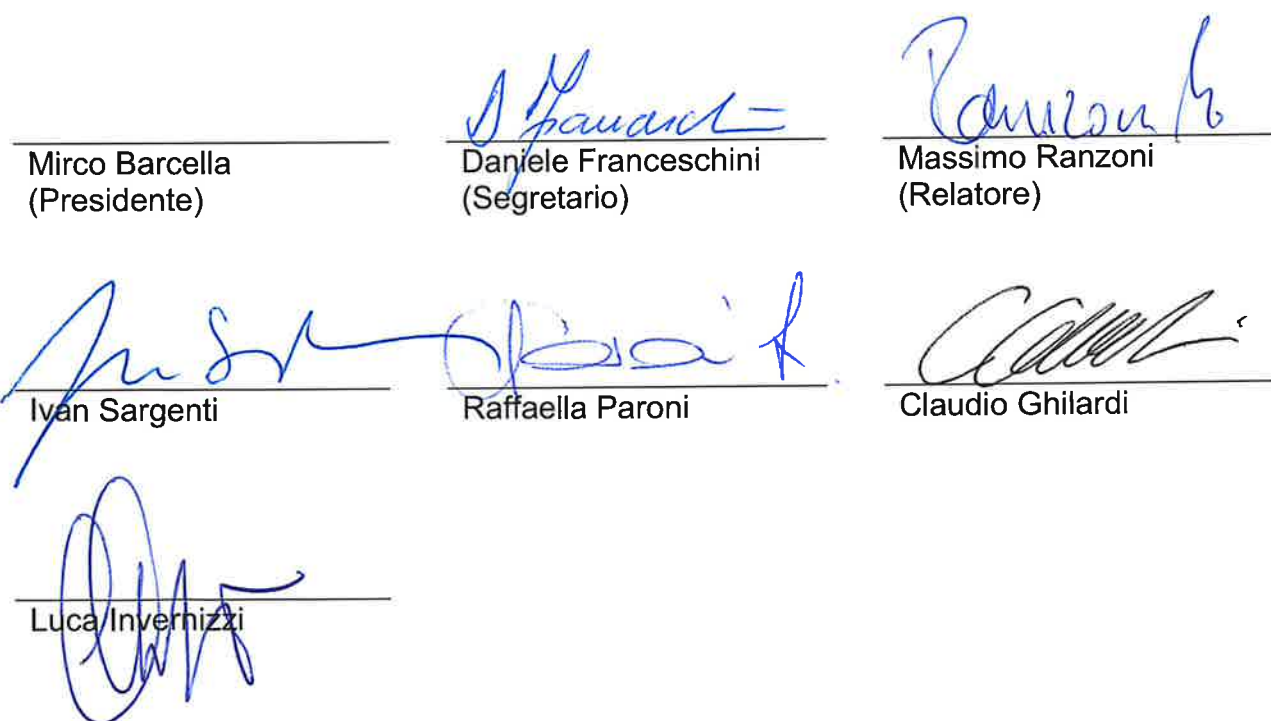 Mirco Barcella
(Presidente)
Daniele Franceschini
(Segretario)
Massimo Ranzoni
(Relatore)
Ivan Sargenti
Raffaella Paroni
Claudio Ghilardi
Luca Invernizzi